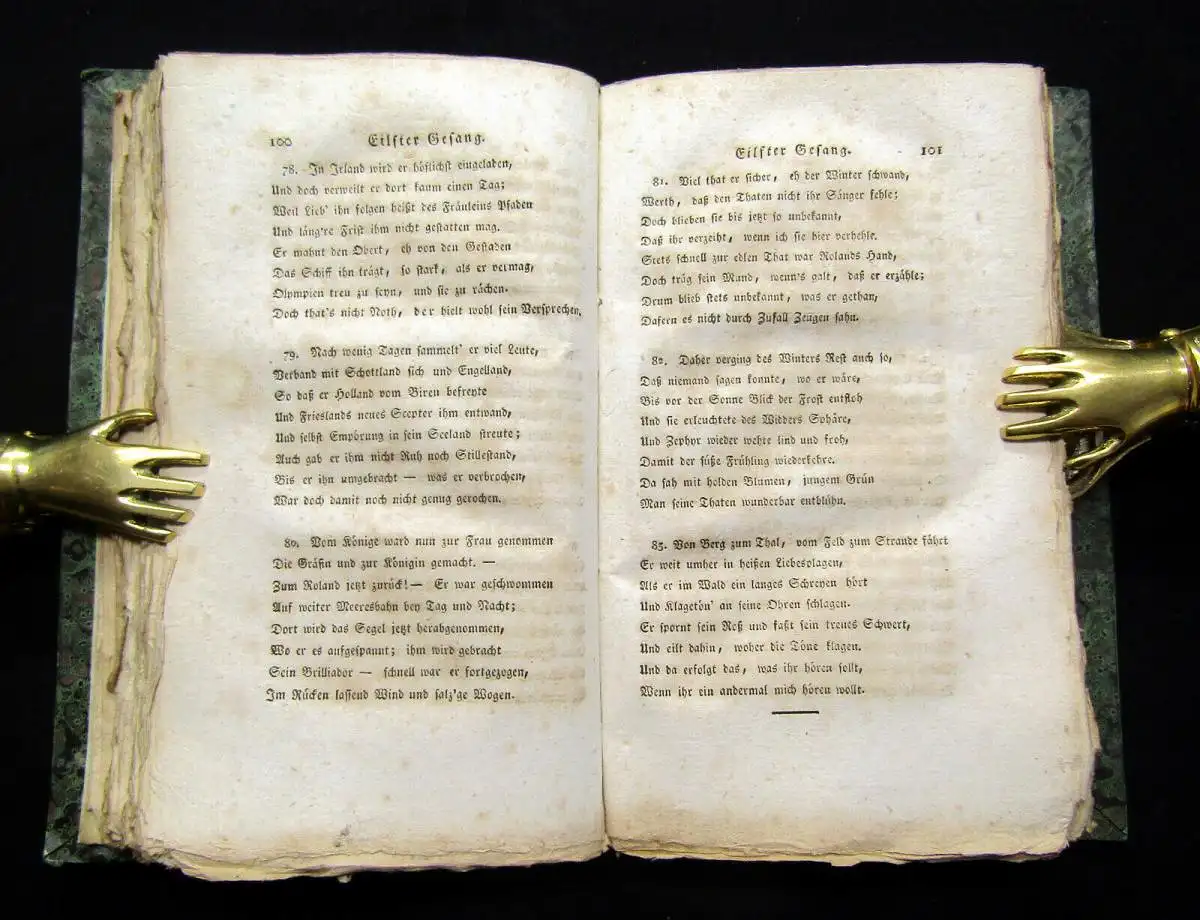 100 Eilfter Gesang.
78. In Irland wird er höflichst eingeladen,
Und doch verweilt er dort kaum einen Tag;
Weil Lieb' ihn folgen heißt des Fräuleins Pfaden
Und läng're Frist ihm nicht gestatten mag.
Er mahnt den Obert, eh von den Gestaden
Das Schiff ihn trägt, so stark, als er vermag,
Olympien treu zu seyn, und sie zu rächen.
Doch that's nicht Noth, der hielt wohl sein Versprechen.
79. Nach wenig Tagen sammelt' er viel Leute,
Verband mit Schottland sich und Engelland,
So daß er Holland vom Biren befreyte
Und Frieslands neues Scepter ihm entwand,
Und selbst Empörung in sein Seeland streute;
Auch gab er ihm nicht Ruh noch Stillestand,
Bis er ihn umgebracht — was er verbrochen,
War doch damit noch nicht genug gerochen.
80. Vom Könige ward nun zur Frau genommen
Die Gräfin und zur Königin gemacht. —
Zum Roland jetzt zurück! — Er war geschwommen
Auf weiter Meeresbahn bey Tag und Nacht;
Dort wird das Segel jetzt herabgenommen,
Wo er es aufgespannt; ihm wird gebracht
Sein Brilliador — schnell war er fortgezogen,
Im Rücken lassend Wind und salz'ge Wogen.
Eilfter Gesang. 101
81. Viel that er sicher, eh der Winter schwand,
Werth, daß den Thaten nicht ihr Sänger fehle;
Doch blieben sie bis jetzt so unbekannt,
Daß ihr verzeiht, wenn ich sie hier verhehle.
Stets schnell zur edlen That war Rolands Hand,
Doch träg sein Mund, wenn's galt, daß er erzähle;
Drum blieb stets unbekannt, was er gethan,
Dafern es nicht durch Zufall Zeugen sahn.
82. Daher verging des Winters Rest auch so,
Daß niemand sagen konnte, wo er wäre,
Bis vor der Sonne Blick der Frost entfloh
Und sie erleuchtete des Widders Sphäre,
Und Zephyr wieder wehte lind und froh,
Damit der süße Frühling wiederkehre.
Da sah mit holden Blumen, jungem Grün
Man seine Thaten wunderbar entblühn.
83. Von Berg zum Thal, vom Feld zum Strande fährt
Er weit umher in heißen Liebesplagen,
Als er im Wald ein langes Schreyen hört
Und Klagetön' an seine Ohren schlagen.
Er spornt sein Roß und faßt sein treues Schwert,
Und eilt dahin, woher die Töne klagen.
Und da erfolgt das, was ihr hören sollt,
Wenn ihr ein andermal mich hören wollt.